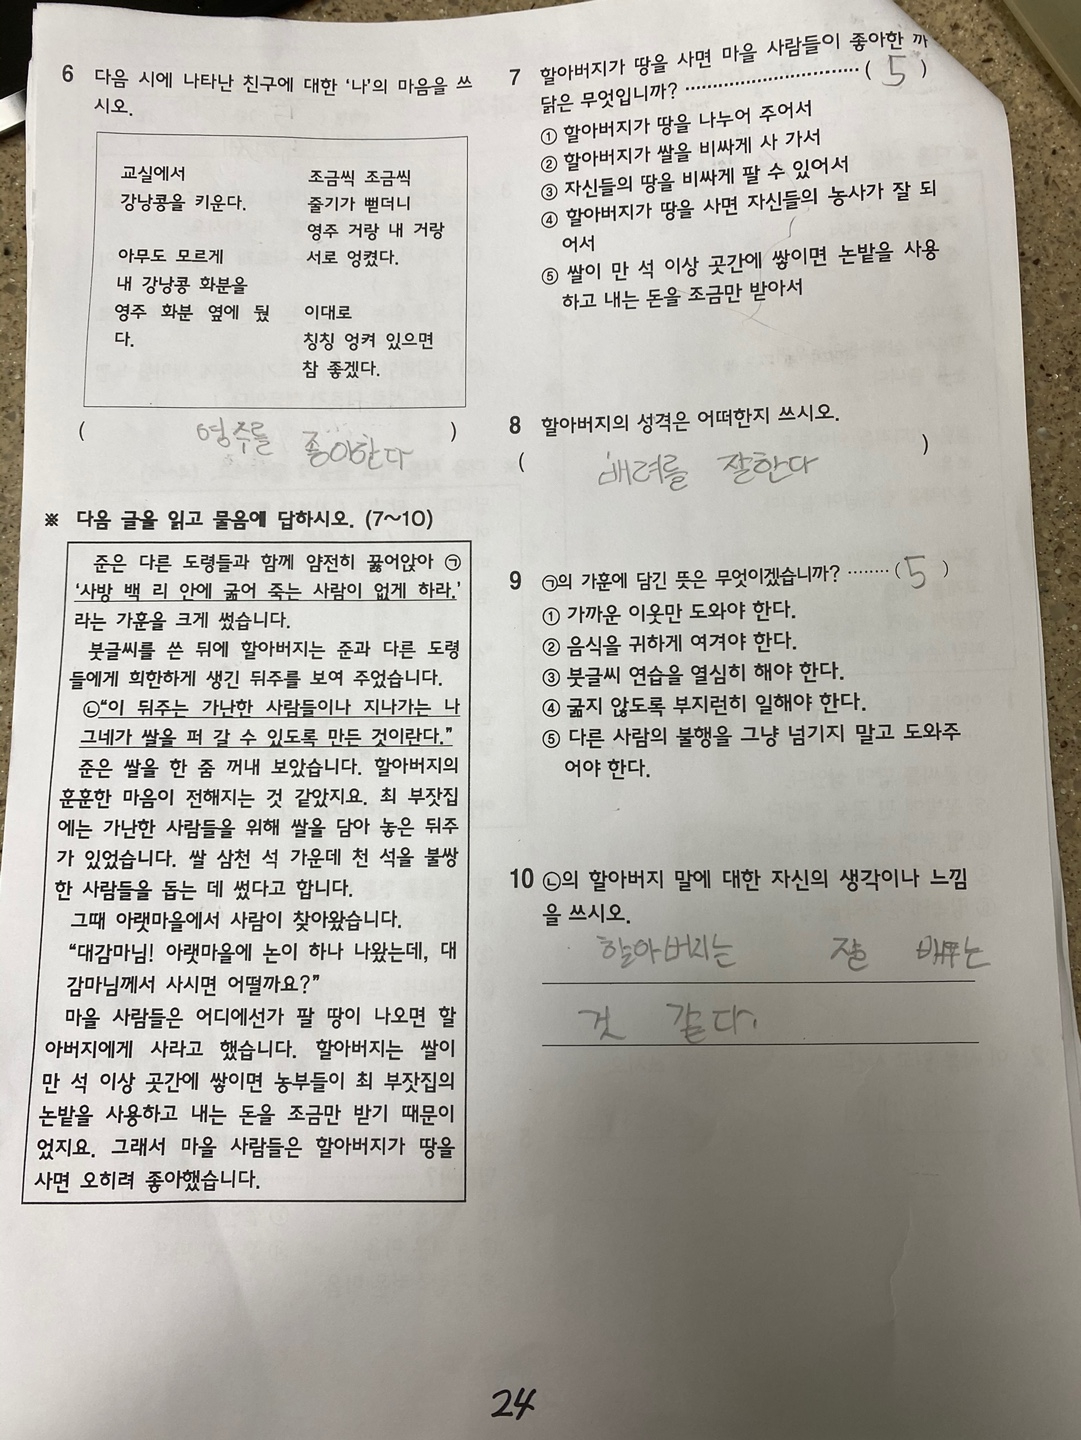 6 다음 시에 나타난 친구에 대한 '나'의 마음을 쓰
시오.
교실에서
강낭콩을 키운다.
아무도 모르게
내 강낭콩 화분을
영주 화분 옆에 뒀
다.
조금씩 조금씩
줄기가 뻗더니
영주 거랑 내 거랑
서로 엉켰다.
이대로
칭칭 엉켜 있으면
참 좋겠다.
( 영주를 좋아한다 )
※ 다음 글을 읽고 물음에 답하시오. (7~10)
준은 다른 도령들과 함께 얌전히 꿇어앉아 ㉠
'사방 백 리 안에 굶어 죽는 사람이 없게 하라.'
라는 가훈을 크게 썼습니다.
붓글씨를 쓴 뒤에 할아버지는 준과 다른 도령
들에게 희한하게 생긴 뒤주를 보여 주었습니다.
㉡"이 뒤주는 가난한 사람들이나 지나가는 나
그네가 쌀을 퍼 갈 수 있도록 만든 것이란다."
준은 쌀을 한 줌 꺼내 보았습니다. 할아버지의
훈훈한 마음이 전해지는 것 같았지요. 최 부잣집
에는 가난한 사람들을 위해 쌀을 담아 놓은 뒤주
가 있었습니다. 쌀 삼천 석 가운데 천 석을 불쌍
한 사람들을 돕는 데 썼다고 합니다.
그때 아랫마을에서 사람이 찾아왔습니다.
"대감마님! 아랫마을에 논이 하나 나왔는데, 대
감마님께서 사시면 어떨까요?"
마을 사람들은 어디에선가 팔 땅이 나오면 할
아버지에게 사라고 했습니다. 할아버지는 쌀이
만 석 이상 곳간에 쌓이면 농부들이 최 부잣집의
논밭을 사용하고 내는 돈을 조금만 받기 때문이
었지요. 그래서 마을 사람들은 할아버지가 땅을
사면 오히려 좋아했습니다.
7 할아버지가 땅을 사면 마을 사람들이 좋아한 까
닭은 무엇입니까? ·································( 5 )
① 할아버지가 땅을 나누어 주어서
② 할아버지가 쌀을 비싸게 사 가서
③ 자신들의 땅을 비싸게 팔 수 있어서
④ 할아버지가 땅을 사면 자신들의 농사가 잘 되
어서
⑤ 쌀이 만 석 이상 곳간에 쌓이면 논밭을 사용
하고 내는 돈을 조금만 받아서
8 할아버지의 성격은 어떠한지 쓰시오.
( 배려를 잘한다 )
9 ㉠의 가훈에 담긴 뜻은 무엇이겠습니까? ········( 5 )
① 가까운 이웃만 도와야 한다.
② 음식을 귀하게 여겨야 한다.
③ 붓글씨 연습을 열심히 해야 한다.
④ 굶지 않도록 부지런히 일해야 한다.
⑤ 다른 사람의 불행을 그냥 넘기지 말고 도와주
어야 한다.
10 ㉡의 할아버지 말에 대한 자신의 생각이나 느낌
을 쓰시오.
할아버지는 잘
것 같다.
24